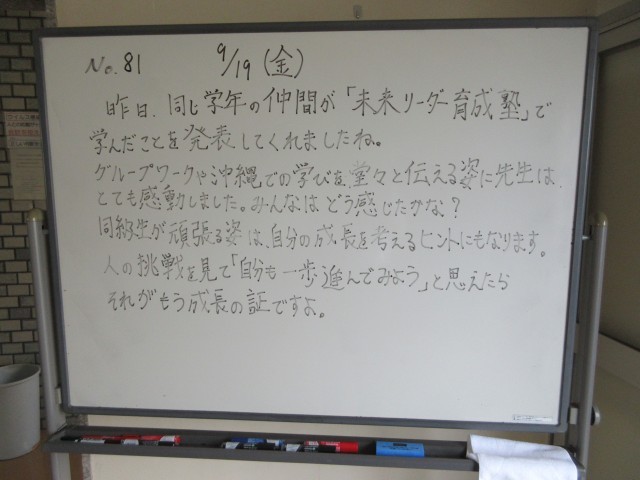 No. 81 9/19 (金)
昨日、同じ学年の仲間が「未来リーダー育成塾」で
学んだことを発表してくれましたね。
グループワークや沖縄での学びを、堂々と伝える姿に先生は、
とても感動しました。みんなはどう感じたかな？
同級生が頑張る姿は、自分の成長を考えるヒントにもなります。
人の挑戦を見て「自分も一歩進んでみよう」と思えたら
それがもう成長の証ですよ。